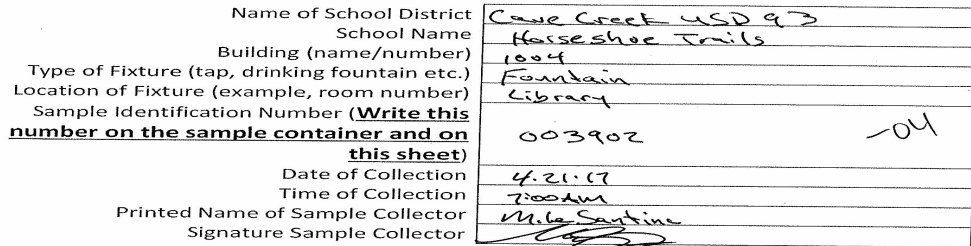 Name of School District Cave Creek USD 93
School Name Horseshoe Trails
Building (name/number) 1004
Type of Fixture (tap, drinking fountain etc.) Fountain
Location of Fixture (example, room number) Library
Sample Identification Number (Write this
number on the sample container and on 003902 -04
this sheet)
Date of Collection 4.21.17
Time of Collection 7:00 AM
Printed Name of Sample Collector
Signature Sample Collector